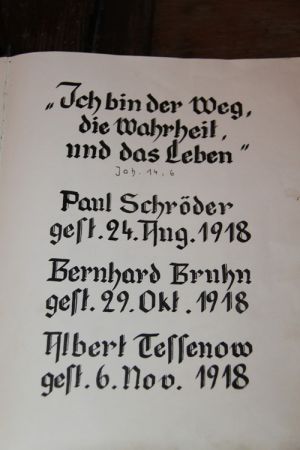 „Ich bin der Weg,
die Wahrheit,
und das Leben"
Joh. 14.6
Paul Schröder
gest. 24. Aug. 1918
Bernhard Bruhn
gest. 29. Okt. 1918
Albert Tessenow
gest. 6. Nov. 1918